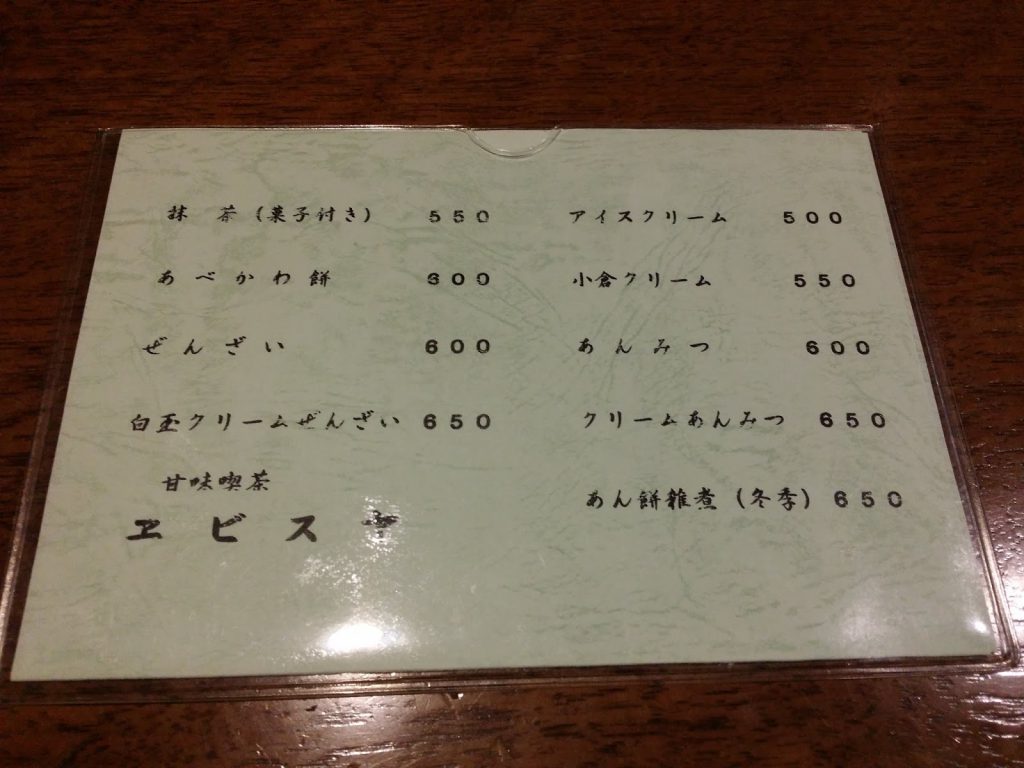 抹茶(菓子付き) 550
あべかわ餅 600
ぜんざい 600
白玉クリームぜんざい 650
甘味喫茶
ヱビスヤ
アイスクリーム 500
小倉クリーム 550
あんみつ 600
クリームあんみつ 650
あん餅雑煮(冬季) 650